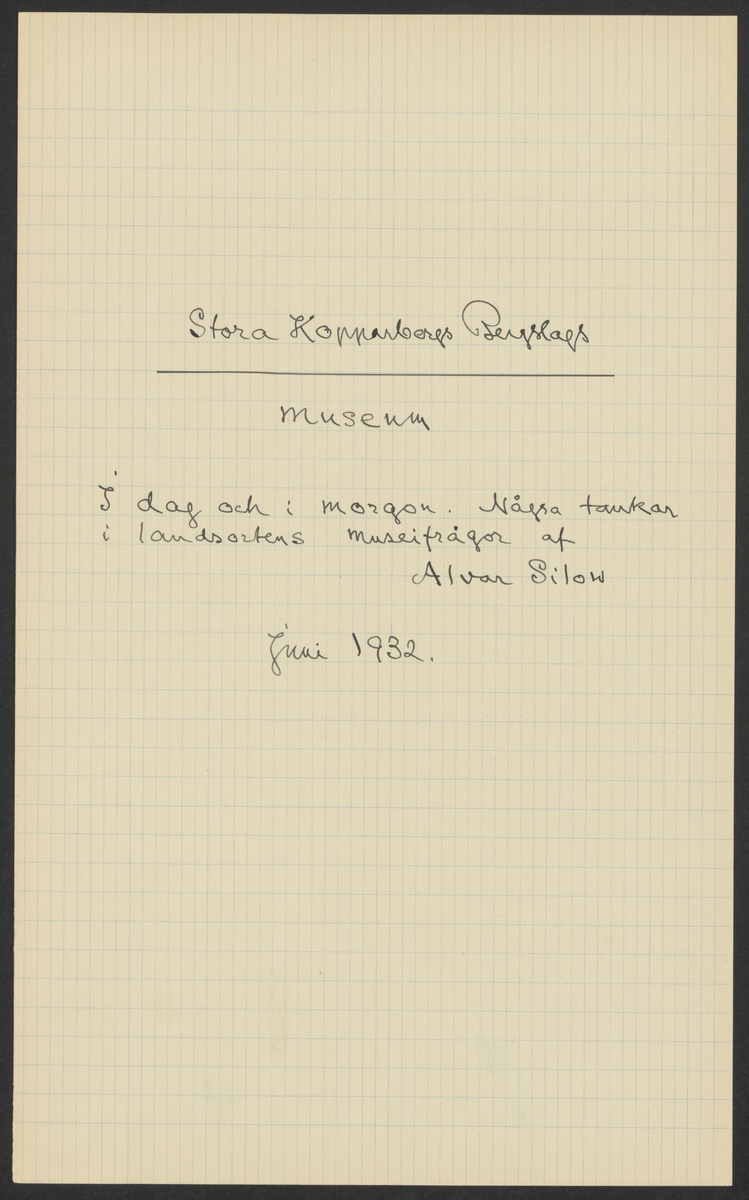 Stora Kopparbergs Bergslags
Museum
I dag och i morgon. Några tankar
i landsortens museifrågor af
Alvar Silow
Juni 1932.